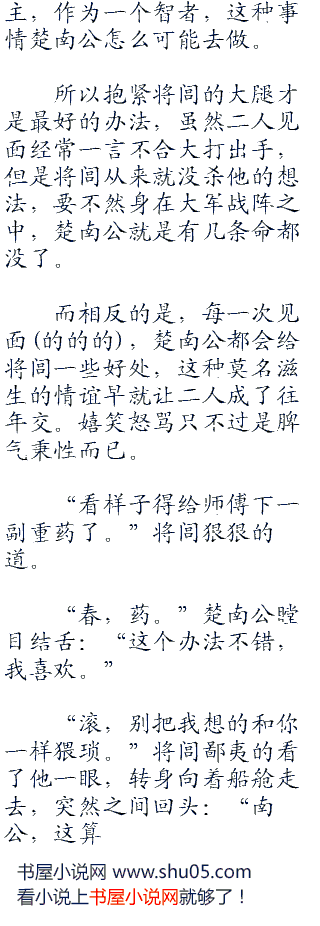 主，作为一个智者，这种事
情楚南公怎么可能去做。
所以抱紧将闾的大腿才
是最好的办法，虽然二人见
面经常一言不合大打出手，
但是将闾从来就没杀他的想
法，要不然身在大军战阵之
中，楚南公就是有几条命都
没了。
而相反的是，每一次见
面(的的的)，楚南公都会给
将闾一些好处，这种莫名滋
生的情谊早就让二人成了往
年交。嬉笑怒骂只不过是脾
气秉性而已。
“看样子得给师傅下一
副重药了。”将闾狠狠的
道。
“春，药。”楚南公瞠
目结舌：“这个办法不错，
我喜欢。”
“滚，别把我想的和你
一样猥琐。”将闾鄙夷的看
了他一眼，转身向着船舱走
去，突然之间回头：“南
公，这算
书屋小说网 www.shu05.com
看小说上书屋小说网就够了！